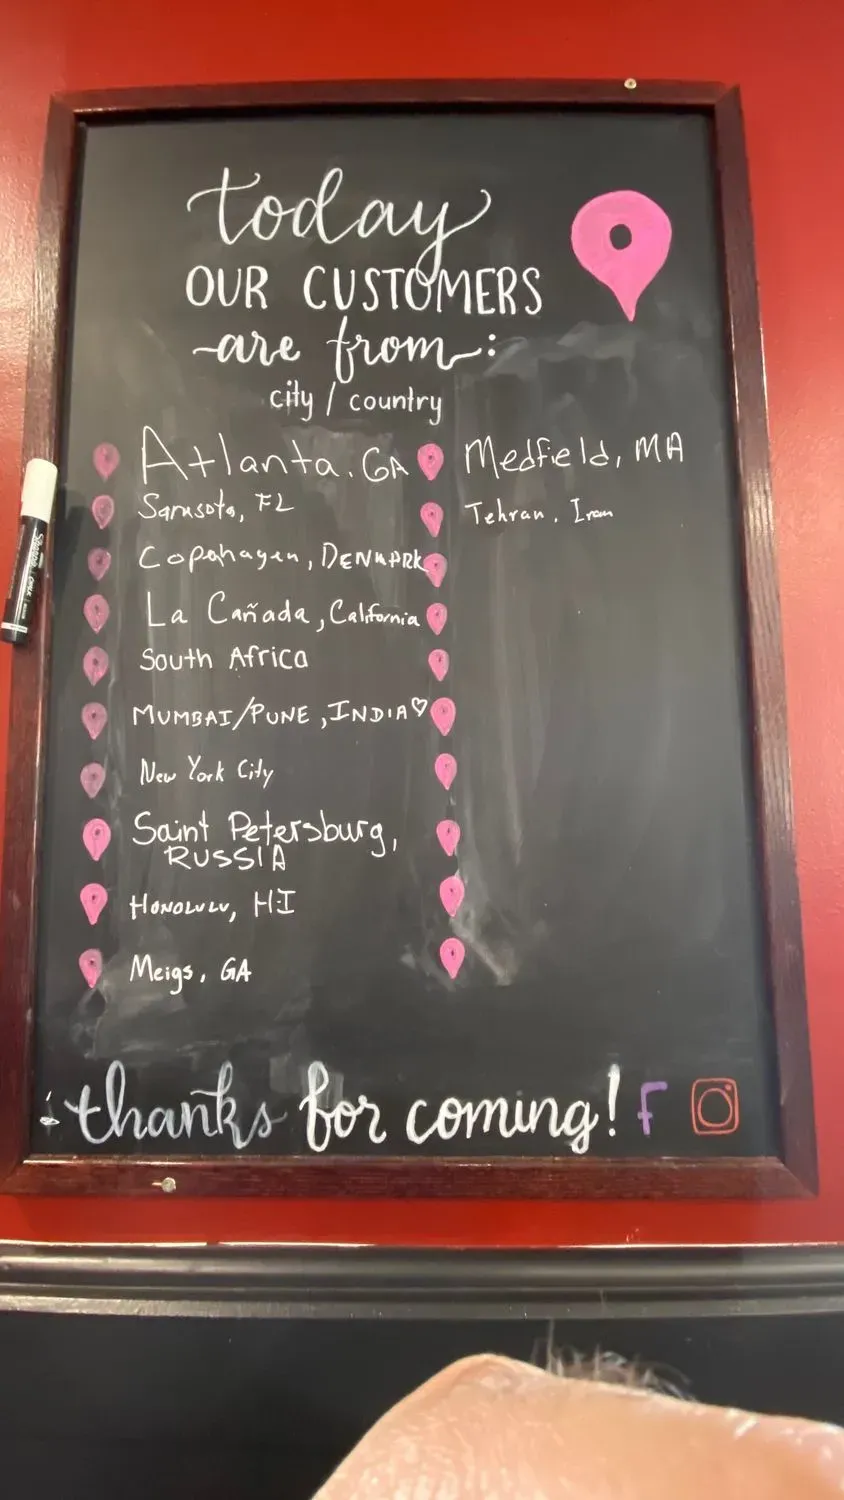 today
OUR CUSTOMERS
are from:
city / country
Atlanta. GA
Sarasota, FL
Copahagen, DENMARK
La Cañada, California
South Africa
MUMBAI/PUNE, INDIA♡
New York City
Saint Petersburg,
RUSSIA
HONOLULU, HI
Meigs, GA
Medfield, MA
Tehran, Iran
thanks for coming! F